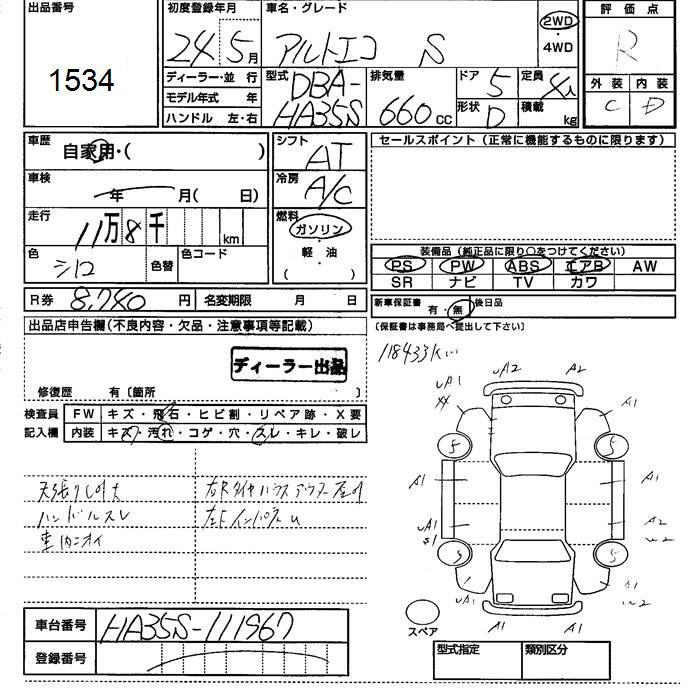 出品番号
1534
初度登録年月
24 5月
車名・グレード
アルトエコ S
2WD
・
4WD
評価点
R
外装 内装
C D
ディーラー・並 行
モデル年式 年
ハンドル 左・右
型式 DBA-
HA35S
排気量
660cc
ドア 5
形状 D
定員 4人
積載 kg
車歴
自家用・( )
車検
年 月( 日)
走行
11万8千 km
色 シロ
色替
色コード
シフト
AT
冷房
A/C
燃料
ガソリン
・
軽油
( )
セールスポイント (正常に機能するものに限ります)
装備品 (純正品に限り○をつけてください)
PS PW ABS エアB AW
SR ナビ TV カワ
R券 8,740 円 名変期限 月 日
新車保証書 有・無 後日品
(保証書は事務局へ提出して下さい)
出品店申告欄(不良内容・欠品・注意事項等記載)
ディーラー出品
修復歴 有〔箇所 〕
118433km
検査員
記入欄
FW キズ・飛石・ヒビ割・リペア跡・X要
内装 キズ・汚れ・コゲ・穴・スレ・キレ・破レ
ハンドルスレ
車内ニオイ
uA1 uA2 A2
XX A1
5 5
A1 A1
uA1 A2
S1 w2
5 5
uA1 A1
w2
A1 A1
スペア
車台番号 HA35S-111967
登録番号
型式指定 類別区分